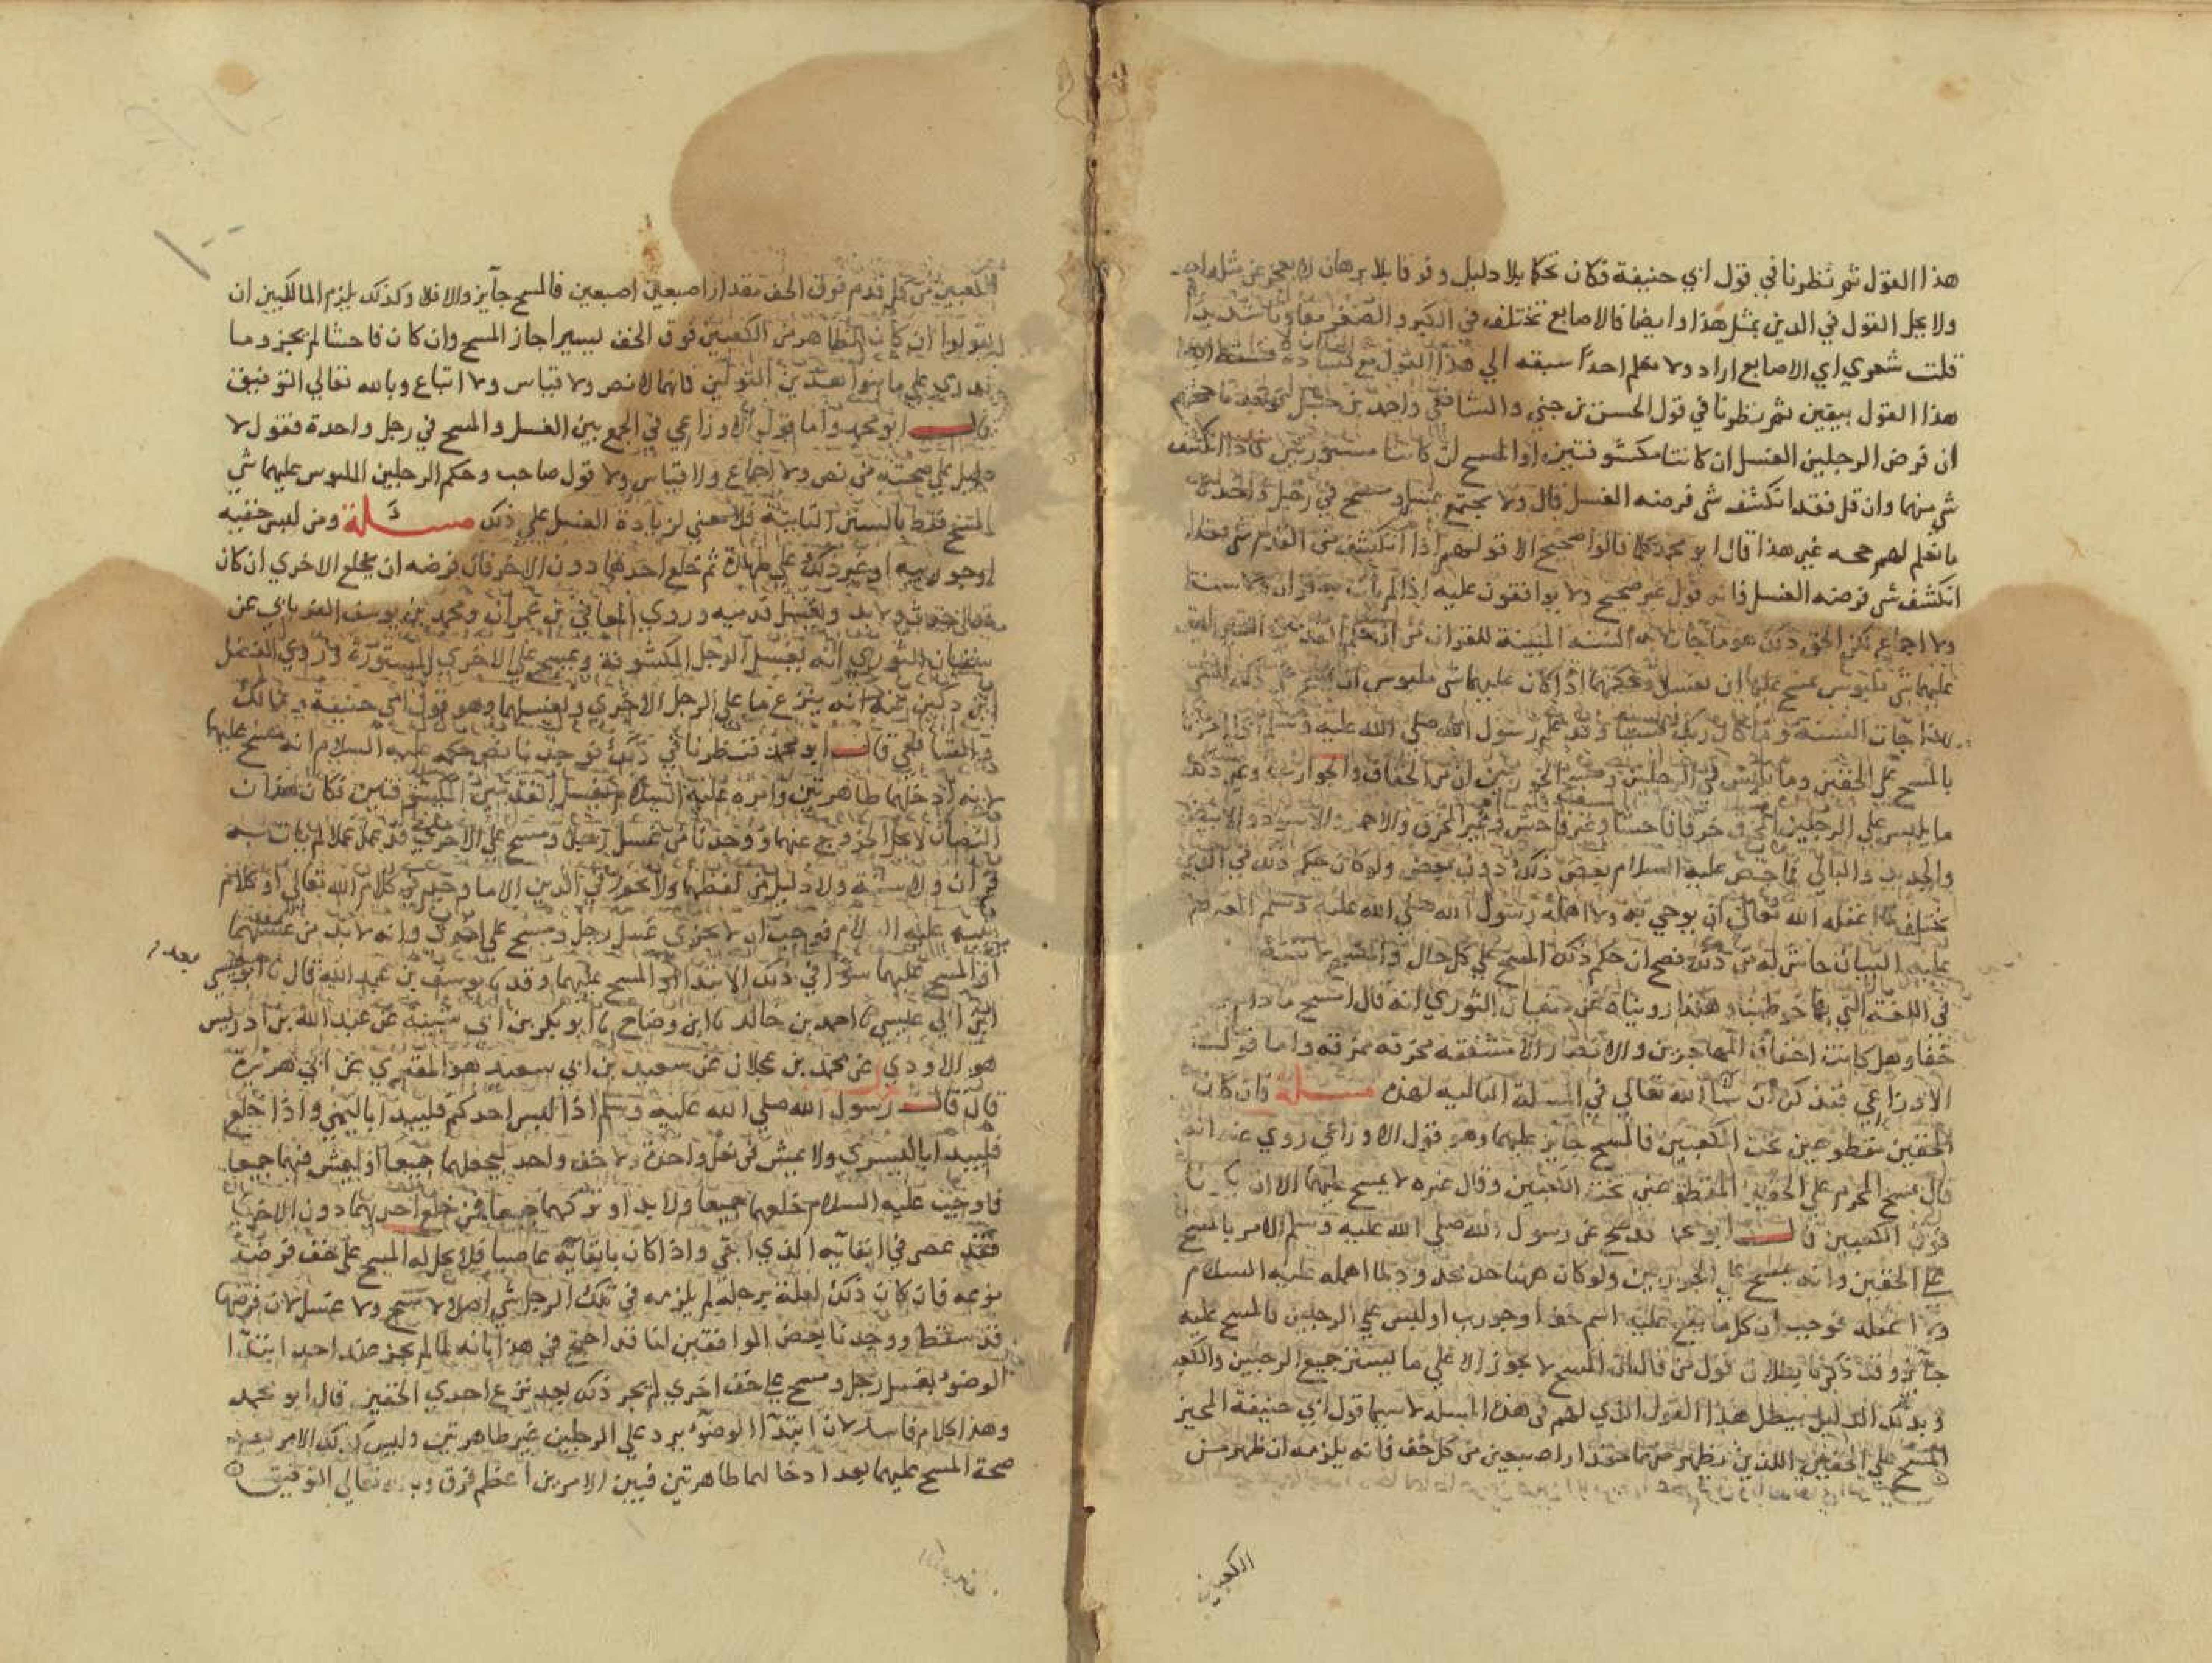 هذا القول ثم نظرنا في قول ابي حنيفة فكان تحكما بلا دليل وفرقا بلا برهان لا يعجز عن مثله احد
ولا يحل القول في الدين بمثل هذا وايضا فالاصابع تختلف في الكبر والصغر تفاوتا شديدا
قلت شعري اي الاصابع اراد ولا نعلم احدا سبقه الي هذا القول مع فساده فسقط
هذا القول بيقين ثم نظرنا في قول الحسن بن حي والشافعي واحمد بن حنبل فوجدنا حجتهم
ان فرض الرجلين الغسل ان كانتا مكشوفتين او المسح ان كانتا مستورتين فاذا انكشف
شي منهما وان قل فقد انكشف شي فرضه الغسل قال ولا يجتمع غسل ومسح في رجل واحدة
ما نعلم لهم حجه غير هذا قال ابو محمد كلما قالوا صحيح الا قولهم اذا انكشف من القدم شي فقد
انكشف شي فرضه الغسل فانه قول غير صحيح ولا يوافقون عليه اذ لم يات به قران ولا سنة
ولا اجماع لكن الحق في ذلك هو ما جات به السنه المبينة للقران من ان حكم القدمين التي ليس
عليهما شي ملبوس يمسح عليه ان يغسلا وحكمهما اذا كان عليهما شي ملبوس ان يمسح علي ذلك الشي
بهذا جات السنة وما كان ربك نسيا وقد علم رسول الله صلي الله عليه وسلم اذ امرنا
بالمسح علي الخفين وما يلبس في الرجلين ومسح الجوربين ان من الخفاف والجوارب وغير ذلك
ما يلبس علي الرجلين المخرق خرقا فاحشا وغير فاحش وغير المخرق والاحمر والاسود والابيض
والجديد والبالي فما خص عليه السلام بعض ذلك دون بعض ولو كان حكم ذلك في الدين
يختلف لما اغفله الله تعالي ان يوحي به ولا اهمله رسول الله صلي الله عليه وسلم المفترض
عليه البيان حاش له من ذلك فصح ان حكم ذلك المسح علي كل حال والمسح لا يقتضي
في اللغة التي بها خوطبنا وهكذا روينا عن سفيان الثوري انه قال امسح ما دام
خفا وهل كانت اخفاف المهاجرين والانصار الا مشققه مخرقه ممزقه واما قول
الاوزاعي فنذكره ان شا الله تعالي في المسلة التاليه لهذه مسلة فان كان
الخفين مقطوعين تحت الكعبين فالمسح جايز عليهما وهو قول الاوزاعي روي عنه انه
قال يمسح المحرم علي الخفين المقطوعين تحت الكعبين وقال غيره لا يمسح عليهما الا ان يكونا
فوق الكعبين قال ابو محمد قد صح عن رسول الله صلي الله عليه وسلم الامر بالمسح
علي الخفين وانه مسح علي الجوربين ولو كان ههنا حد محدود لما اهمله عليه السلام
ولا اغفله فوجب ان كل ما يقع عليه اسم خف او جورب او لبس علي الرجلين فالمسح عليه
جايز وقد ذكرنا بطلان قول من قال ان المسح لا يجوز الا علي ما يستر جميع الرجلين والكعبين
وبذلك الدليل يبطل هذا القول الذي لهم في هذه المسله لا سيما قول ابي حنيفة المجيز
المسح علي الخفين اللذين يظهر منهما مقدار اصبعين من كل خف فانه يلزمه ان ظهر من
الكعبين
الكعبين من كل قدم فوق الخف مقدار اصبعين اصبعين فالمسح جايز والا فلا وكذلك يلزم المالكيين ان
يقولوا ان كان الظاهر من الكعبين فوق الخف يسيرا جاز المسح وان كان فاحشا لم يجز وما
ندري علي ما بنوا هذين القولين فانهما لا نص ولا قياس ولا اتباع وبالله تعالي التوفيق
قال ابو محمد واما قول الاوزاعي في الجمع بين الغسل والمسح في رجل واحدة فقول لا
دليل علي صحته من نص ولا اجماع ولا قياس ولا قول صاحب وحكم الرجلين الملبوس عليهما شي
المسح فقط بالسنن الثابتة فلا معني لزيادة الغسل علي ذلك مسلة ومن لبس خفيه
او جوربيه او غير ذلك علي طهارة ثم خلع احدهما دون الاخر فان فرضه ان يخلع الاخري ان كان
قد احدث ولا بد ويغسل قدميه وروي المعافي بن عمران ومحمد بن يوسف الفريابي عن
سفيان الثوري انه يغسل الرجل المكشوفة ويمسح علي الاخري المستورة وروي الفضل
ابن دكين عنه انه ينزع ما علي الرجل الاخري ويغسلهما وهو قول ابي حنيفة ومالك
والشافعي قال ابو محمد فنظرنا في ذلك فوجدنا نص حكمه عليه السلام انه مسح عليهما
لانه ادخلهما طاهرتين وامره عليه السلام بغسل القدمين المكشوفتين فكان هذان
النصان لا يحل الخروج عنهما ووجدنا من غسل رجلا ومسح علي الاخري قد عمل عملا لم يات به
قران ولا سنة ولا دليل من لفظهما ولا يجوز في الدين الا ما وجد في كلام الله تعالي او كلام
نبيه عليه السلام فوجب ان لا يجزي غسل رجل ومسح علي اخري وانه لا بد من غسلهما
او المسح عليهما سوا في ذلك الابتدا او المسح عليهما وقد نا يوسف بن عبد الله قال نا ابو عيسي
بعد
ابن ابي عيسي نا احمد بن خالد نا ابن وضاح نا ابو بكر بن ابي شيبة عن عبد الله بن ادريس
هو الاودي عن محمد بن عجلان عن سعيد بن ابي سعيد هو المقبري عن ابي هريرة
قال قال رسول الله صلي الله عليه وسلم اذا لبس احدكم فليبدا باليمني واذا خلع
فليبدا باليسري ولا يمش في نعل واحدة ولا خف واحد ليخلعهما جميعا او ليمش فيهما جميعا
فاوجب عليه السلام خلعهما جميعا ولا بد او تركهما جميعا فمن خلع احديهما دون الاخري
فقد عصي في ابقايه الذي ابقي واذا كان بابقايه عاصيا فلا يحل له المسح علي خف فرضه
نزعه فان كان ذلك لعلة برجله لم يلزمه في تلك الرجل شي اصلا لا مسح ولا غسل لان فرضها
قد سقط ووجدنا بعض الموافقين لنا قد احتج في هذا بانه لما لم يجز عند احد ابتدا
الوضوء بغسل رجل ومسح علي خف اخري لم يجز ذلك بعد نزع احدي الخفين قال ابو محمد
وهذا كلام فاسد لان ابتدا الوضوء يرد علي الرجلين غير طاهرتين وليس كذلك الامر بعد
صحة المسح عليهما بعد ادخالهما طاهرتين فبين الامرين اعظم فرق وبالله تعالي التوفيق